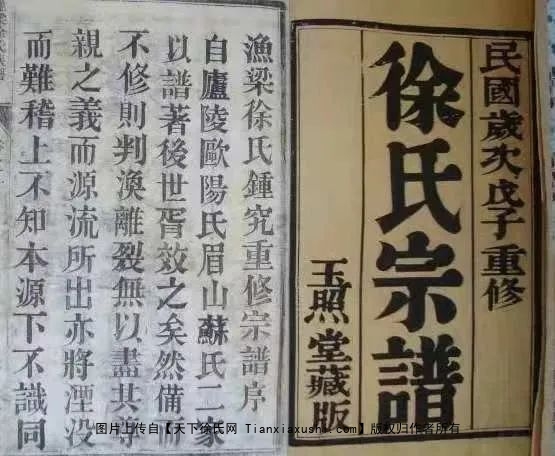 民國歲次戊子重修
徐氏宗譜
玉照堂藏版
漁梁徐氏鍾究重修宗譜序
自廬陵歐陽氏眉山蘇氏二家
以譜著後世胥效之矣然備而
不修則判渙離裂無以盡其尊
親之義而源流所出亦將湮没
而難稽上不知本源下不識同
图片上传自【天下徐氏网 Tianxiaxushi.com】版权归作者所有